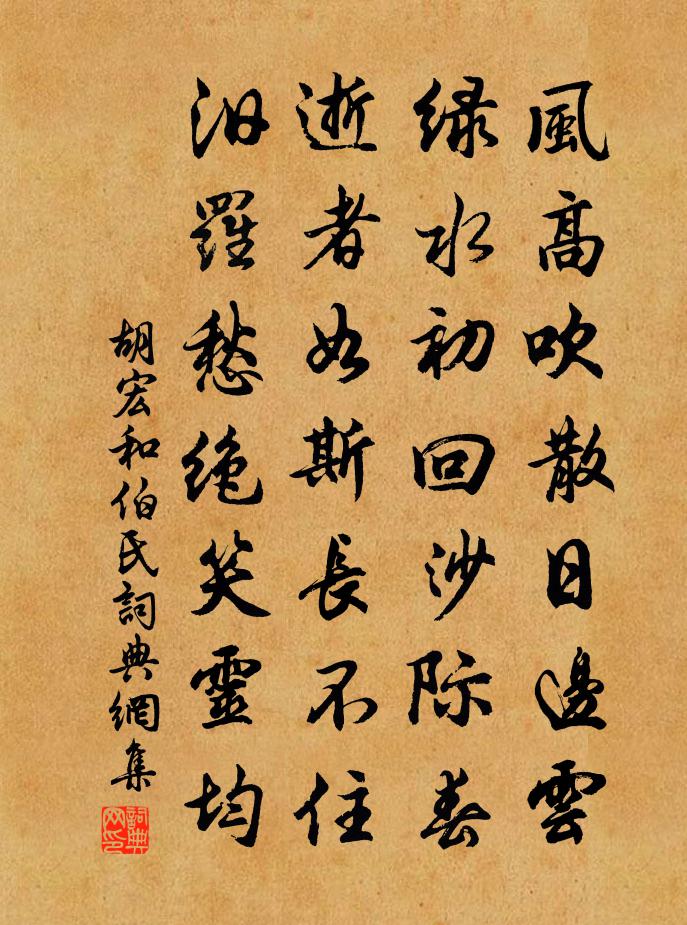 風高吹散日邊雲
緑水初回沙际春
逝者如斯長不住
汨羅愁绝笑靈均
胡宏和伯氏詞典網集
詞典网印